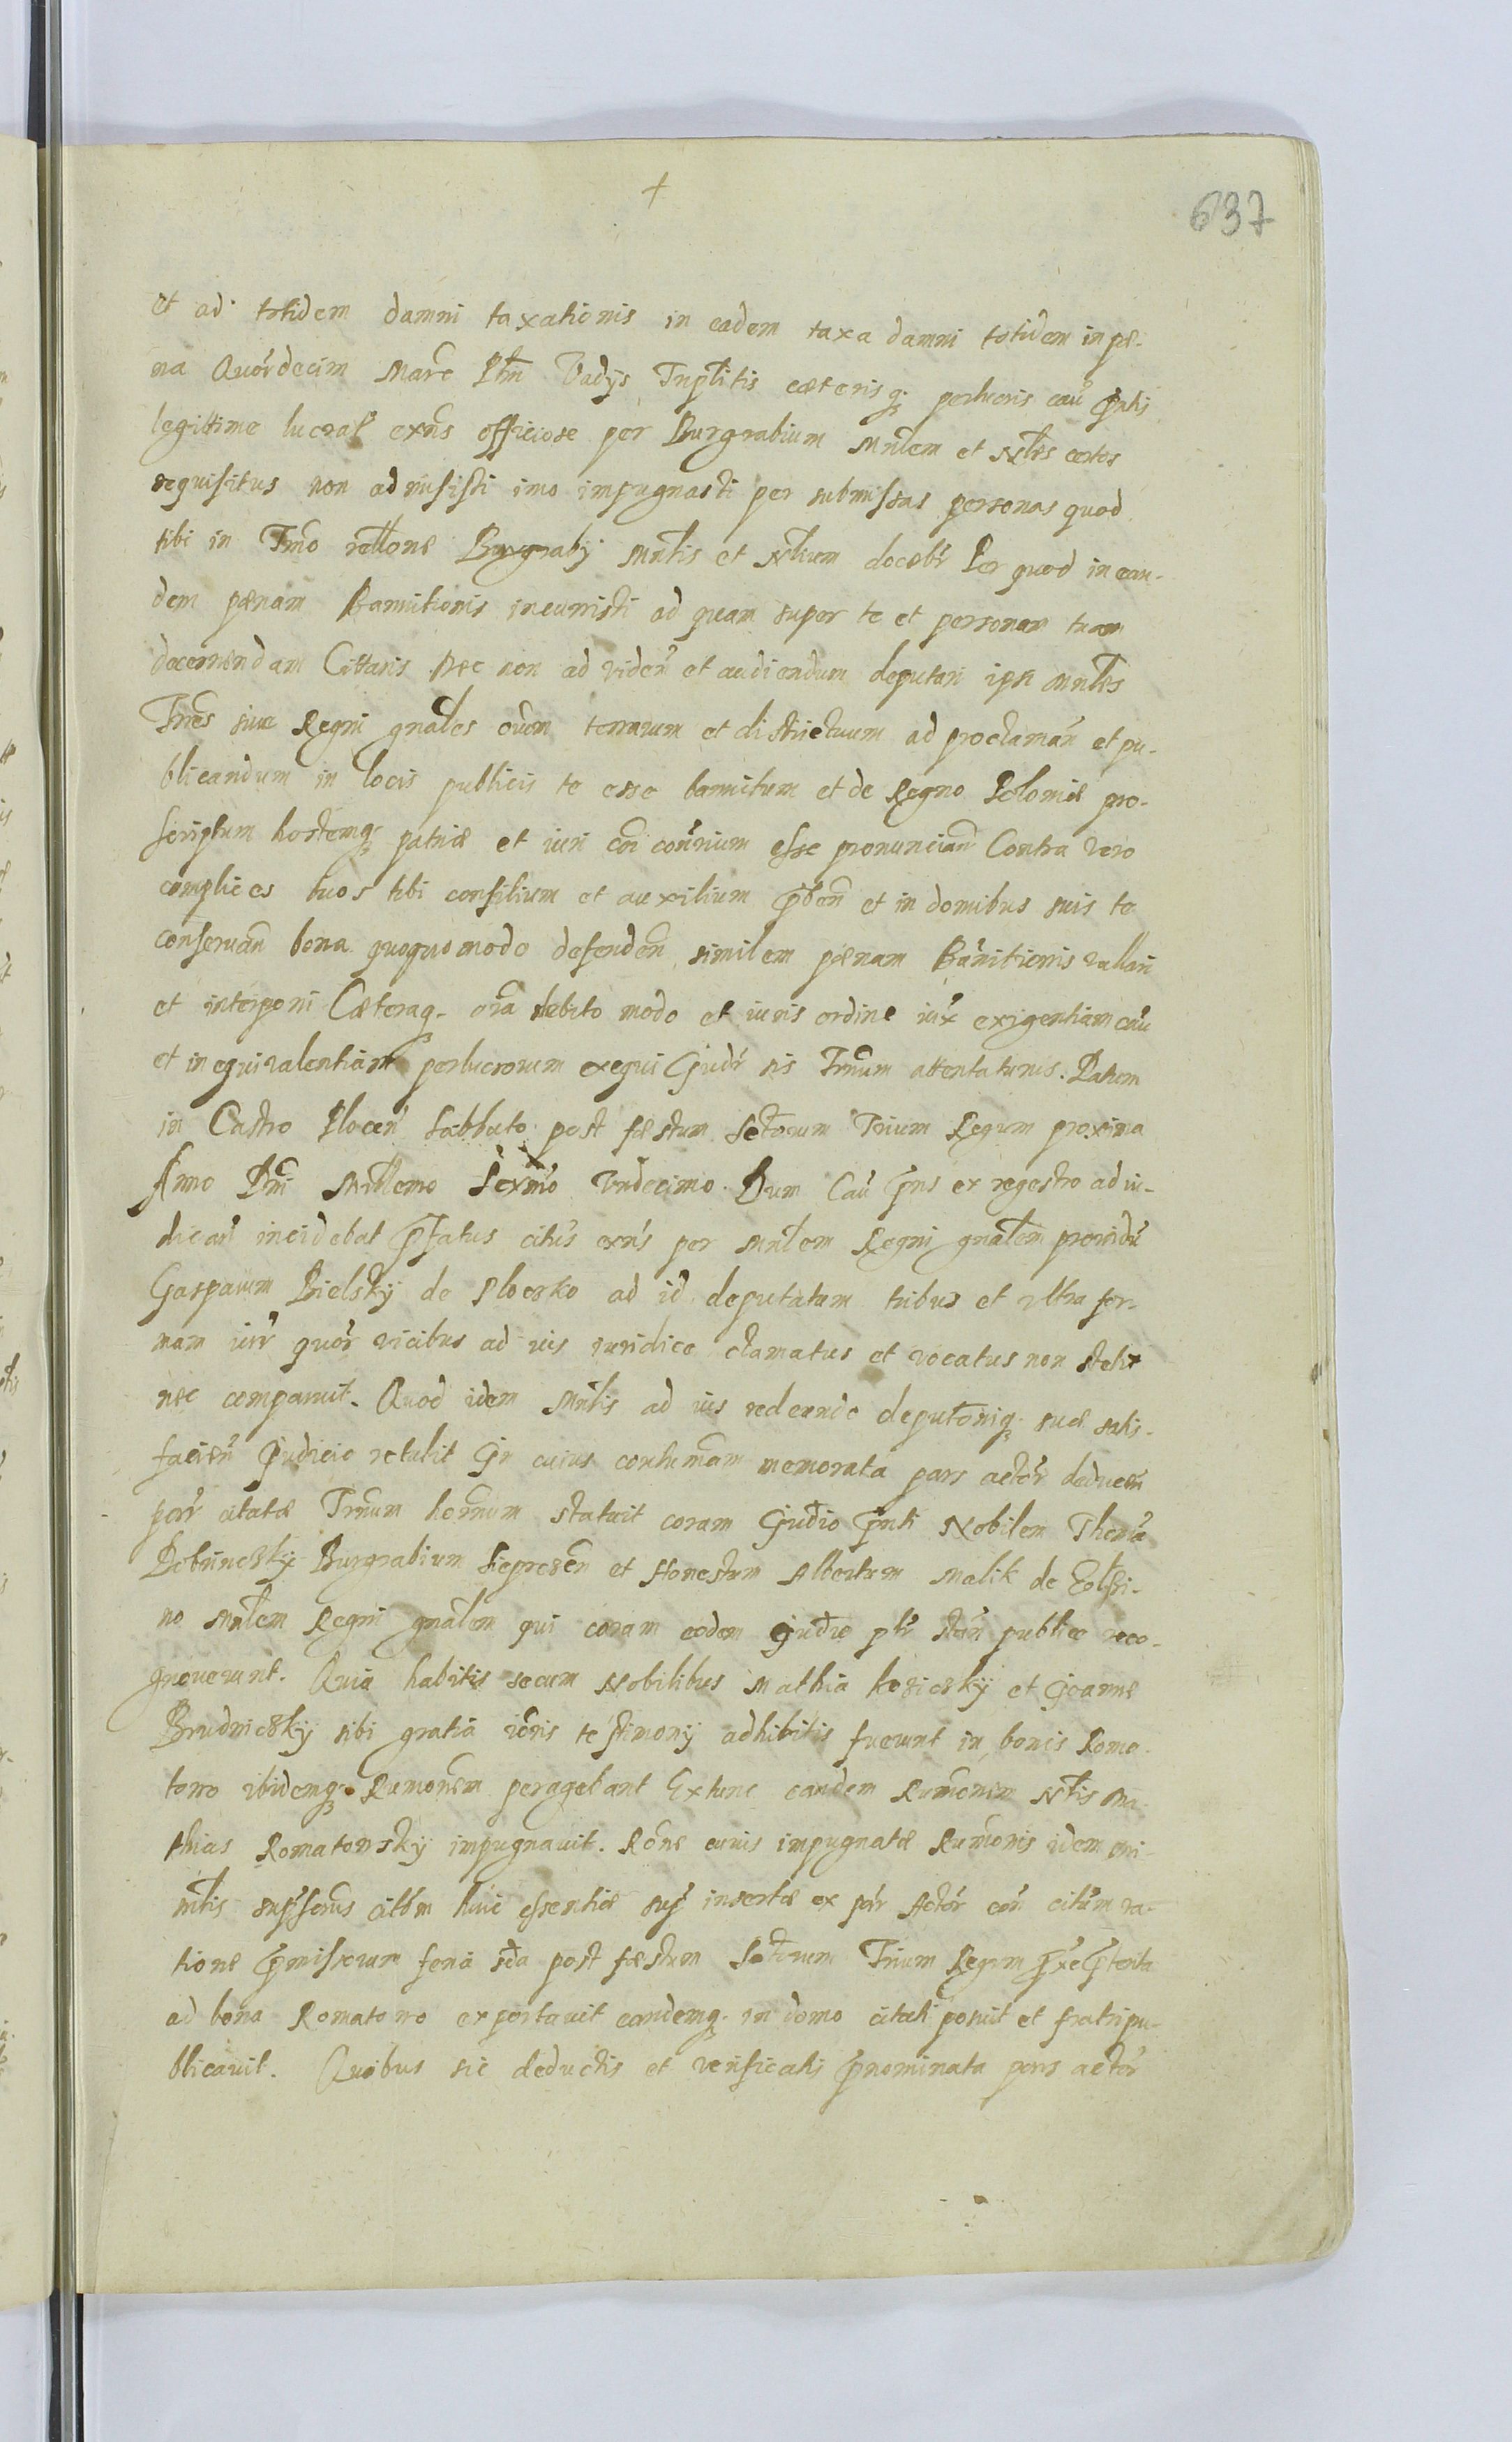 +
637
et ad totidem damni taxationis in eadem taxa damni totidem in pæ-
na Quor̄decim Marc̄ Pln̄ Vadys Triplitis cæterisq; perlucris cau̅ p̄ntis
legittime lucrat̄ exn̄s officiose per Burgrabium Mn̄lem et Nb̄les certos
requisitus non admisisti imo impugnasti per submissas personas quod
tibi in Trn̄o rellōne Burgraby Mn̄lis et Nb̄lium docebr̄ Per quod in ean-
dem pænam Bannitionis incurristi ad quam super te et personam tuam
decernendam Cittaris Nec non ad viden̄ et audiendum deputari ipsi Mn̄les
Trn̄es siue Regni gn̄ales om̄m terrarum et districtuum ad proclaman̄ et pu-
blicandum in locis publicis te esse bannitum et de Regno Poloniæ pro-
scriptum hostemq; patriæ et iuri coī contr̄rium esse pronuncian̄ Contra vero
complices tuos tibi consilium et auxilium p̄ben̄ et in domibus suis te
conseruan̄ bona quoquomodo defenden̄ similem pænam Ban̄itionis vallari
et interponi Cæteraq; om̄ia debito modo et iuris ordine iux̄ exigentiam cau̅
et in equivalentiam perlucrorum exequi Gudr̄ sis Trn̄um attentaturus. Datum
in Castro Plocen̄ Sabbato post fæstum Sctōrum Trium Regum proxima
Anno Dn̄i Mill̄emo Sexm̄o Vndecimo. Dum Cau̅ p̄ns ex regestro ad iu-
dican̄ incidebat p̄fatus citūs exn̄s per Mn̄lem Regni gn̄alem providū
Gasparum Bielsky de Plocsko ad id deputatum tribus et vltra for-
mam iur̄ quor̄ vicibus ad ius iuridice clamatus et vocatus non stetit
nec comparuit. Quod idem Mn̄lis ad ius redeundo deputōniq; suæ satis-
facien̄ Iudicio retulit In cuius contumām memorata pars actor̄ deducen̄
parr̄ citatæ Trn̄um hodn̄um statuit coram Gudīo p̄nti Nobilem Thoma̅
Burgrabium Sieprcen̄ et Honestum Albertum Malik de
no Mn̄lem Regni gn̄alem qui coram eodem Gudīo pl̄r stan̄ publice reco-
gnoverunt. Quia habitis secum Nobilibus Mathia et Joanne
sibi gratia vēris testimony adhibitis fuerunt in bonis Roma-
towo ibidemq; Rumōnem peragebant Extunc eandem Rumōnem Nb̄lis Ma-
thias Romatowsky impugnauit. Rōne cuius impugnatæ Rumōnis idem mi-
nr̄lis supr̄scrūs citōm huic essentiæ sup̄ insertæ ex parr̄ Actor̄ con̄ citūm ra-
tione p̄missorum feria scd̄a post fæstum Sctōrum Trium Regum p̄xe p̄terita
ad bona Romatowo exportauit eandemq; in domo citati posuit et fratri pu-
blicauit. Quibus sic deductis et verificatis p̄nominata pars actor̄